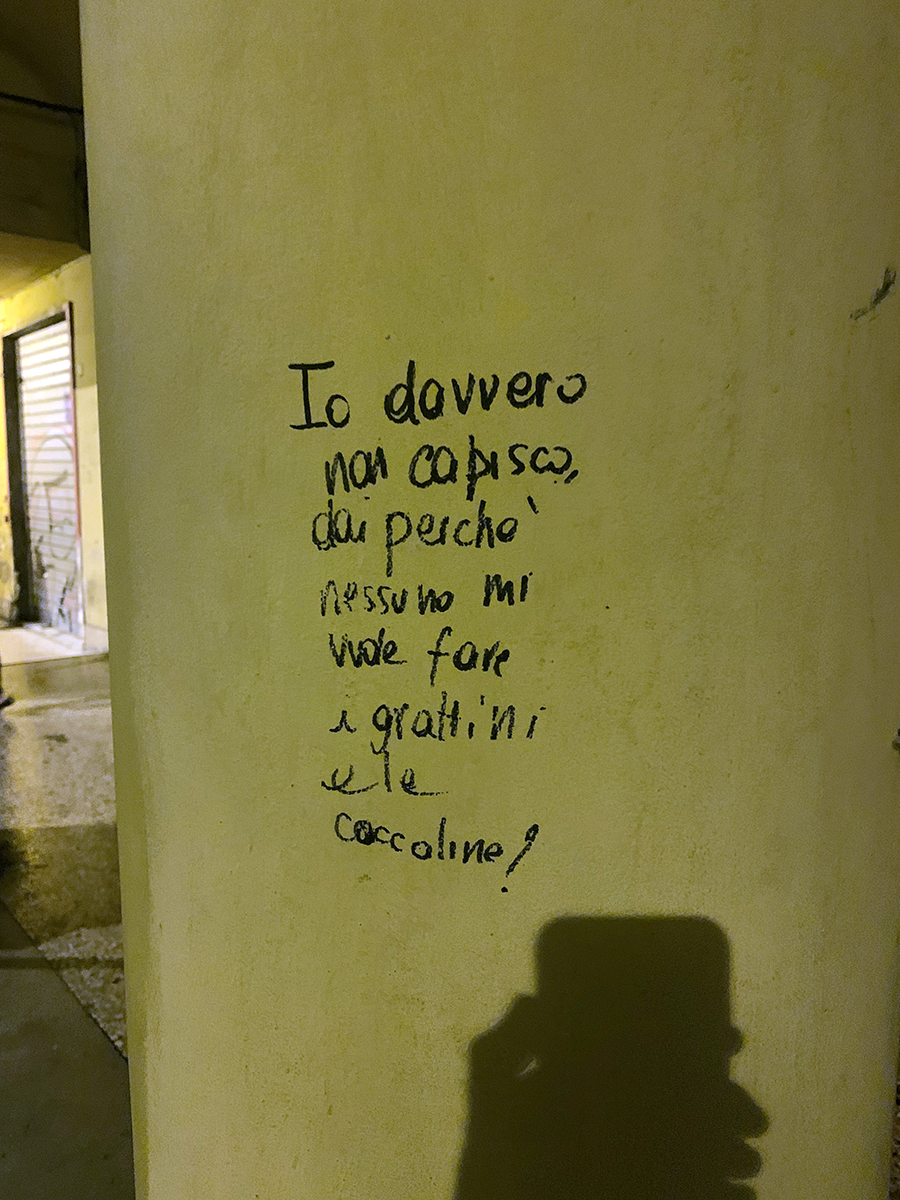 Io davvero
non capisco,
dai perchè
nessuno mi
vuole fare
i grattini
e le
coccoline!